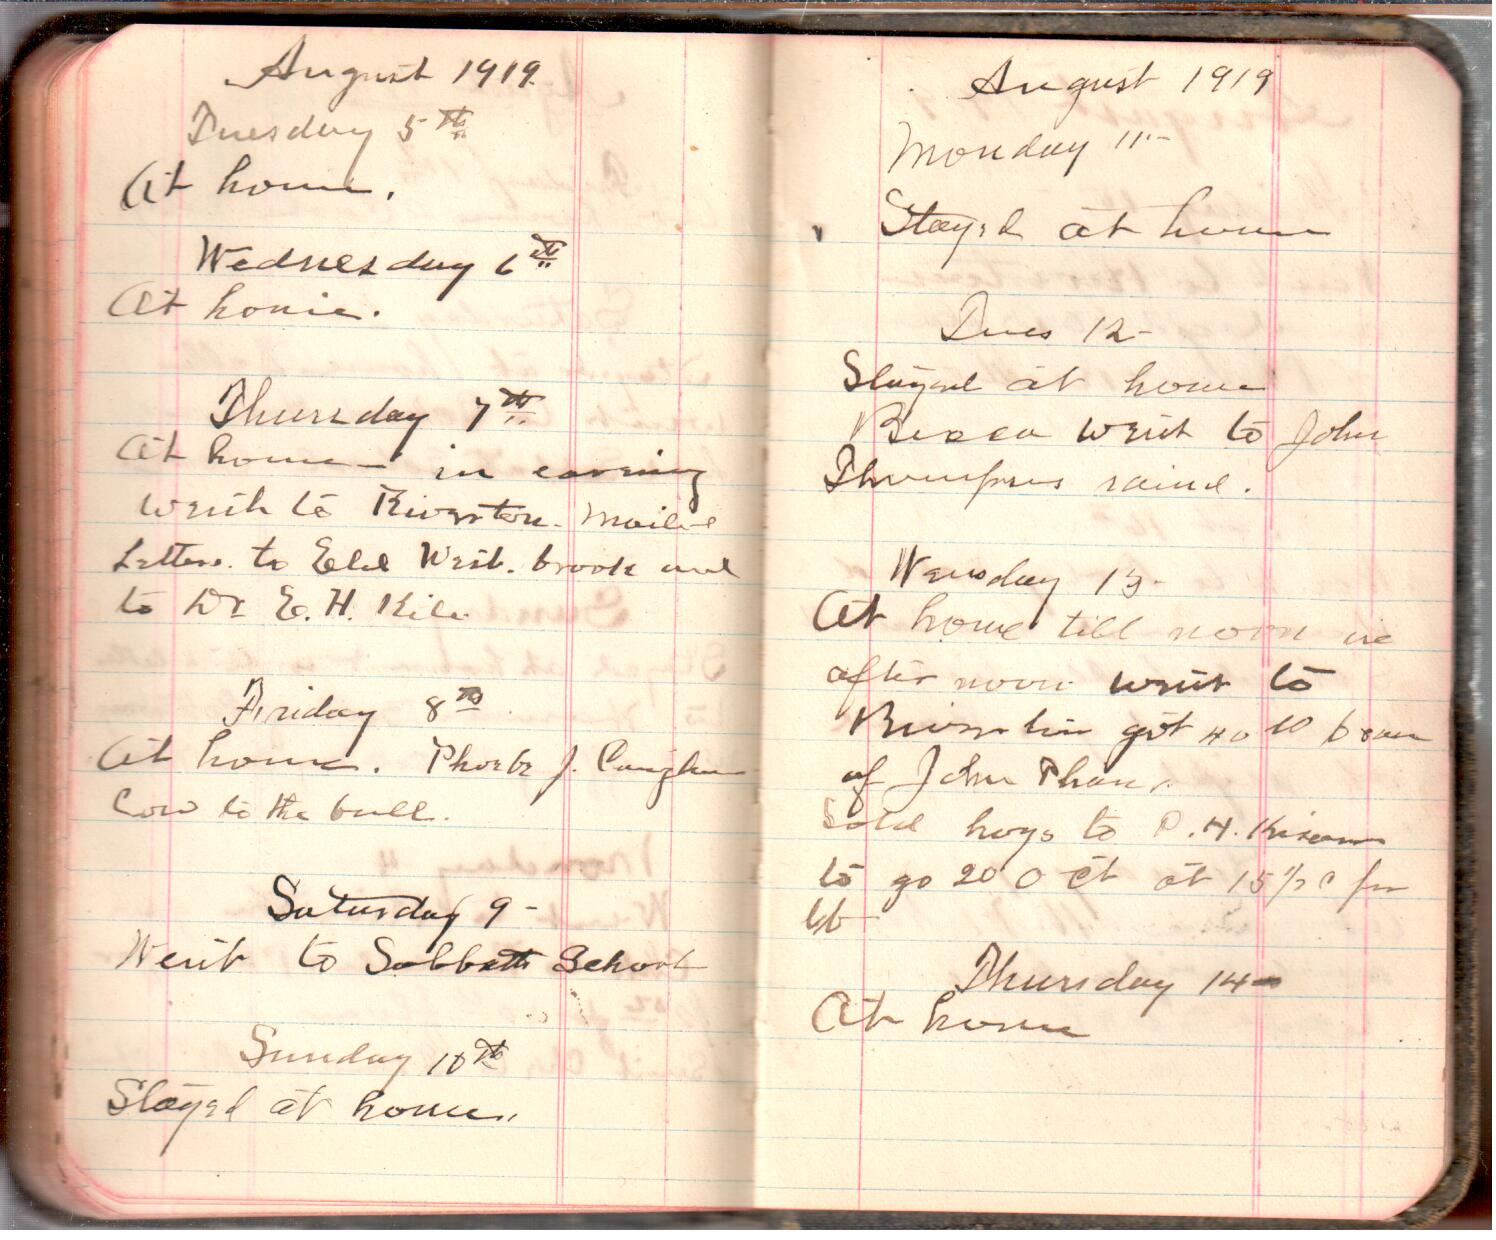 August 1919.
Tuesday 5th
At home.
Wednesday 6th
At home.
Thursday 7th
At home in evening
went to Riverton. Mailed
Letters. to Eld West.brook and
to Dr E. H.
Friday 8th
At home. Phoebe J.
Cow to the bull.
Saturday 9-
Went to Sabbath School
Sunday 10th
Stayed at home.
August 1919
Monday 11-
Stayed at home
Tues 12-
Stayed at home
went to John
Thompsons
Wensday 13-
At home till noon in
after noon went to
got 40 lb
of John
Sold hogs to P. H.
to go 20 Oct at 15 1/2 c per
lb
Thursday 14-
At home